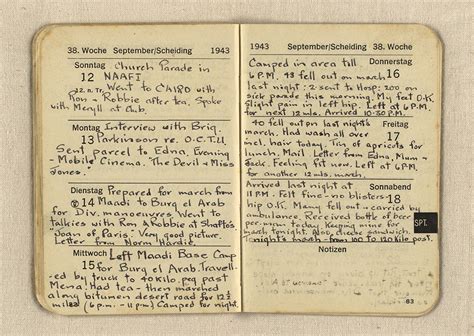 38. Woche September/Scheiding 1943
Sonntag Church Parade in
12 NAAFI
Went to CAIRO with
Ron & Robbie after tea. Spoke
with Meryll at Club.
Montag Interview with Brig.
13 Parkinson re. O.C.T.U.
Sent parcel to Edna, Evening -
Mobile Cinema. "The Devil & Miss
Jones.
Dienstag Prepared for march from
14 Maadi to Burg el Arab
for Div. manoeuvres Went to
talkies with Ron & Robbie at Shafto's
"Joan of Paris". Very good picture.
Letter from Norm Hardie.
Mittwoch Left Maadi Base Camp
15 for Burg el Arab. Travell-
ed by truck to 40 kilo. peg past
Mena. Had tea - then marched
along bitumen desert road for 12½
miles (6 p.m. - 11 p.m.) Camped for night.
1943 September/Scheiding 38. Woche
Camped in area till Donnerstag
6 P.M. 43 fell out on march 16
last night: 2 sent to Hosp: 200 on
sick parade this morning. My feet O.K.
Slight pain in left hip. Left at 6 P.M.
for next 12 mls. Arrived 10-30 P.M.
40 fell out on last night's Freitag
march. Had wash all over 17
inc. hair today. Tin of apricots for
lunch. Mail Letter from Edna, Mum &
Jack. Feeling fit now. Left at 6 P.M.
for another 12 mls. march.
Arrived last night at Sonnabend
11 P.M. Felt fine - no blisters 18
hip O.K. Many fell out - carried by
ambulance. Received bottle of beer
per man today Keeping mine for SPT.
march tonight. Also, cheese sandwich.
Tonight's march from 100 to 120 kilo post.
Notizen
83